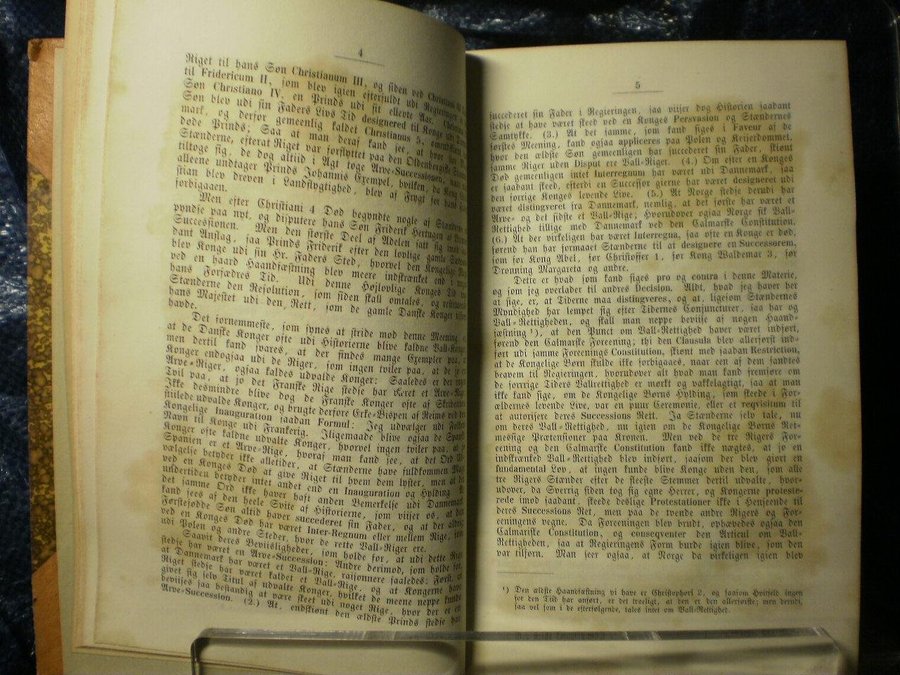 4
Riget til hans Søn Christianum III, og siden ved Christiani
til Fridericum II, som blev igien efterfuldt udi Regieringen
Søn Christiano IV, en Prinds udi sit ellevte Aar.
Søn blev udi sin Faders Livs Tid designered til Konge
og derfor gemeenlig kaldet Christianus 5,
døde Prinds; Saa at man deraf kand see, at hvor
Stænderne, efterat Riget var forflyttet paa den Oldenborgiske
tiltoge sig, de dog altiid i Agt toge Arve-Successionen,
alleene undtager Prinds Johannis Exempel, hvilken, da Kong
stian blev dreven i Landflygtighed, blev af Frygt for hans
forbigaaen.
Men efter Christiani 4 Død begyndte nogle af Stænderne
pynde paa nyt, og disputere hans Søn Friderik Hertugen af
Successionen. Men den største Deel af Adelen satt sig mod
dant Anslag, saa Prinds Friderik efter den lovlige gamle
blev Konge udi sin Hr. Faders Sted, hvorvel den Kongelige
ved en haard Haandfæstning blev meere indskrænket end i
hans Forfædres Tid. Udi denne Højlovlige Konges Tid
Stænderne den Resolution, som siden skall omtales, og
hans Majestet udi den Rett, som de gamle Danske Konger
havde.
Det fornemmeste, som synes at stride mod denne Meening,
at de Danske Konger ofte udi Historierne blive kaldne Vall-
men dertil kand svares, at der findes mange Exempler paa,
Konger endogsaa udi de Riger, som ingen tviler paa, at de jo
Arve-Riger, ogsaa kaldes udvalde Konger: Saaledes er der ingen
Tvil paa, at jo det Franske Rige stedse har været et Arve-Rige,
Ikke desmindre blive dog de Franske Konger ofte af Skribentere
stiilede udvalde Konger, og brugte derfore Erke-Bispen af Reims ved
Kongelige Inauguration saadan Formul: Jeg udvælger udi
Navn til Konge udi Frankerig. Iligemaade blive ogsaa de Spanske
Konger ofte kaldne udvalte Konger, hvorvel ingen tviler paa, at jo
Spanien er et Arve-Rige, hvoraf man kand see, at det Ord
vælgelse betyder ikke alletider, at Stænderne have fuldkommen Magt
ved en Konges Død at give Riget til hvem dem lyster, men at det
undertiden betyder intet andet end en Inauguration og Hylding. At
det samme Ord ikke haver haft anden Bemerkelse udi Dannemark
kand sees af den heele Svite af Historierne, som viiser os, at den
Førstefødde Søn altid haver succederet sin Fader, og at der aldrig
ved en Konges Død har været Inter-Regnum eller mellem Rige, som
udi Polen og andre Steder, hvor de rette Vall-Riger ere.
Saavit deres Beviisligheder, som holde for, at udi dette Rige
stedse har været en Arve-Succession: Andre derimod, som holde for,
at Dannemark har været et Vall-Rige, raisonnere saaledes: Først, at
Riget stedse har været kaldet et Vall-Rige, og at Kongerne have
givet sig selv Titul af udvalte Konger, hvilket de meene neppe kunde
bevises saa bestandig at være skeet udi noget Rige, hvor der er en
Arve-Succession. (2.) At, endskiønt den ældste Prinds stedse har
5
succederet sin Fader i Regieringen, saa viiser dog Historien saadant
stedse at have været skeed ved en Konges Persvasion og Stændernes
Samtykke. (3.) At det samme, som kand siges i Faveur af de
førstes Meening, kand ogsaa appliceres paa Polen og Keiserdommet,
hvor den ældste Søn gemeenligen har succederet sin Fader, skiønt
samme Riger uden Disput ere Vall-Riger. (4.) Om efter en Konges
Død gemeenligen intet Interregnum har været udi Dannemark, saa
er saadant skeed, efterdi en Successor gierne har været designeret udi
den forrige Konges levende Live. (5.) At Norge stedse derudi har
været distingveret fra Dannemark, nemlig, at det første har været et
Arve- og det sidste et Vall-Rige; Hvorudover ogsaa Norge fik Vall-
Rettighed tillige med Dannemark ved den Calmarske Constitution.
(6.) At der virkeligen har været Interregna, saa ofte en Konge er død,
førend han har formaaet Stænderne til at designere en Successorem,
som for Kong Abel, for Christoffer 1, for Kong Waldemar 3, for
Dronning Margareta og andre.
Dette er hvad som kand siges pro og contra i denne Materie,
og som jeg overlader til andres Decision. Aldt, hvad jeg haver her
at sige, er, at Tiderne maa distingveres, og at, ligesom Stændernes
Myndighed har lempet sig efter Tidernes Conjuncturer, saa har og
Vall-Rettigheden, og skall man neppe beviise af nogen Haand-
fæstning ¹), at den Punct om Vall-Rettighed haver været indført,
førend den Calmarske Foreening; thi den Clausula blev allerførst ind-
ført udi samme Foreenings Constitution, skiønt med saadan Restriction,
at de Kongelige Børn skulde ikke forbigaaes, naar een af dem fandtes
beqvem til Regieringen, hvorudover alt hvad man kand fremføre om
de forrige Tiders Vallrettighed er mørkt og vakkelagtigt, saa at man
ikke kand sige, om de Kongelige Børns Hylding, som skeede i For-
ældernes levende Live, var et puur Ceremonie, eller et reqvisitum til
at autorisere deres Successions Rett. Ja Stænderne selv tale, nu
om deres Vall-Rettighed, nu igien om de Kongelige Børns Ret-
messige Prætensioner paa Kronen. Men ved de tre Rigers For-
eening og den Calmarske Constitution kand ikke nægtes, at jo en
indskrænked Vall-Rettighed blev indført, saasom der blev giort en
fundamental Lov, at ingen kunde blive Konge uden den, som alle
tre Rigers Stænder efter de fleeste Stemmer dertil udvalte, hvor-
udover, da Sverrig siden tog sig egne Herrer, og Kongerne proteste-
rede imod saadant, skeede deslige Protestationer ikke i Henseende til
deres Successions Ret, men paa de tvende andre Rigers og For-
eeningens vegne. Da Foreeningen blev brudt, ophævedes ogsaa den
Calmarske Constitution, og conseqventer den Articul om Vall-
Rettigheden, saa at Regieringens Form burde igien blive, som den
var tilforn. Man seer ogsaa, at Norge da virkeligen igien blev
¹) Den ældste Haandfæstning vi have er Christophori 2, og saasom Hvitfeld ingen
før den Tid har anført, er det troeligt, at den er den allerførste; men derudi,
saa vel som i de efterfølgende, tales intet om Vall-Rettighed.